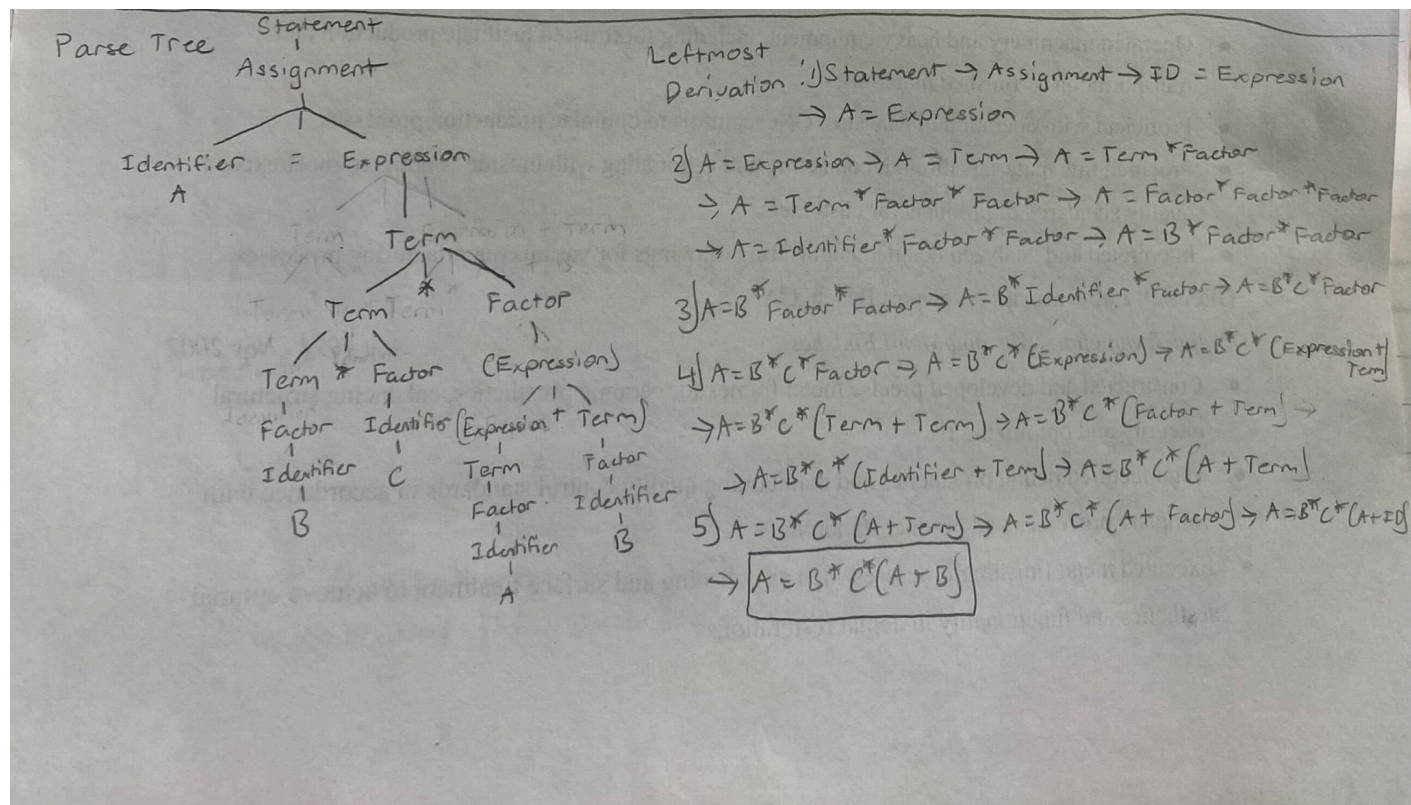 Parse Tree
Statement
Assignment
Identifier = Expression
A
Term
Term * Factor
Term * Factor (Expression)
Factor Identifier (Expression + Term)
Identifier C Term Factor
B Factor Identifier
Identifier B
A
Leftmost
Derivation : 1) Statement → Assignment → ID = Expression
→ A = Expression
2) A = Expression → A = Term → A = Term * Factor
→ A = Term * Factor * Factor → A = Factor * Factor * Factor
→ A = Identifier * Factor * Factor → A = B * Factor * Factor
3) A = B * Factor * Factor → A = B * Identifier * Factor → A = B * C * Factor
4) A = B * C * Factor → A = B * C * (Expression) → A = B * C * (Expression +
Term)
→ A = B * C * (Term + Term) → A = B * C * (Factor + Term) →
→ A = B * C * (Identifier + Term) → A = B * C * (A + Term)
5) A = B * C * (A + Term) → A = B * C * (A + Factor) → A = B * C * (A + ID)
→ A = B * C * (A + B)